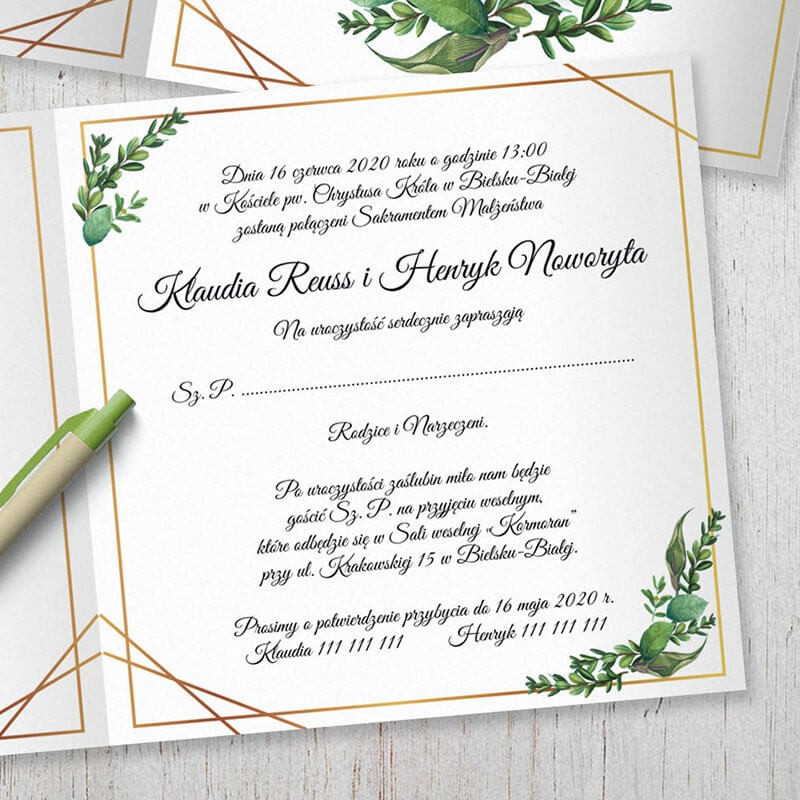 Dnia 16 czerwca 2020 roku o godzinie 13:00
w Kościele pw. Chrystusa Króla w Bielsku-Białej
zostaną połączeni Sakramentem Małżeństwa
Klaudia Reuss i Henryk Noworyta
Na uroczystość serdecznie zapraszają
Sz. P. ........................................................................
Rodzice i Narzeczeni.
Po uroczystości zaślubin miło nam będzie
gościć Sz. P. na przyjęciu weselnym,
które odbędzie się w Sali weselnej „Kormoran”
przy ul. Krakowskiej 15 w Bielsku-Białej.
Prosimy o potwierdzenie przybycia do 16 maja 2020 r.
Klaudia 111 111 111 Henryk 111 111 111